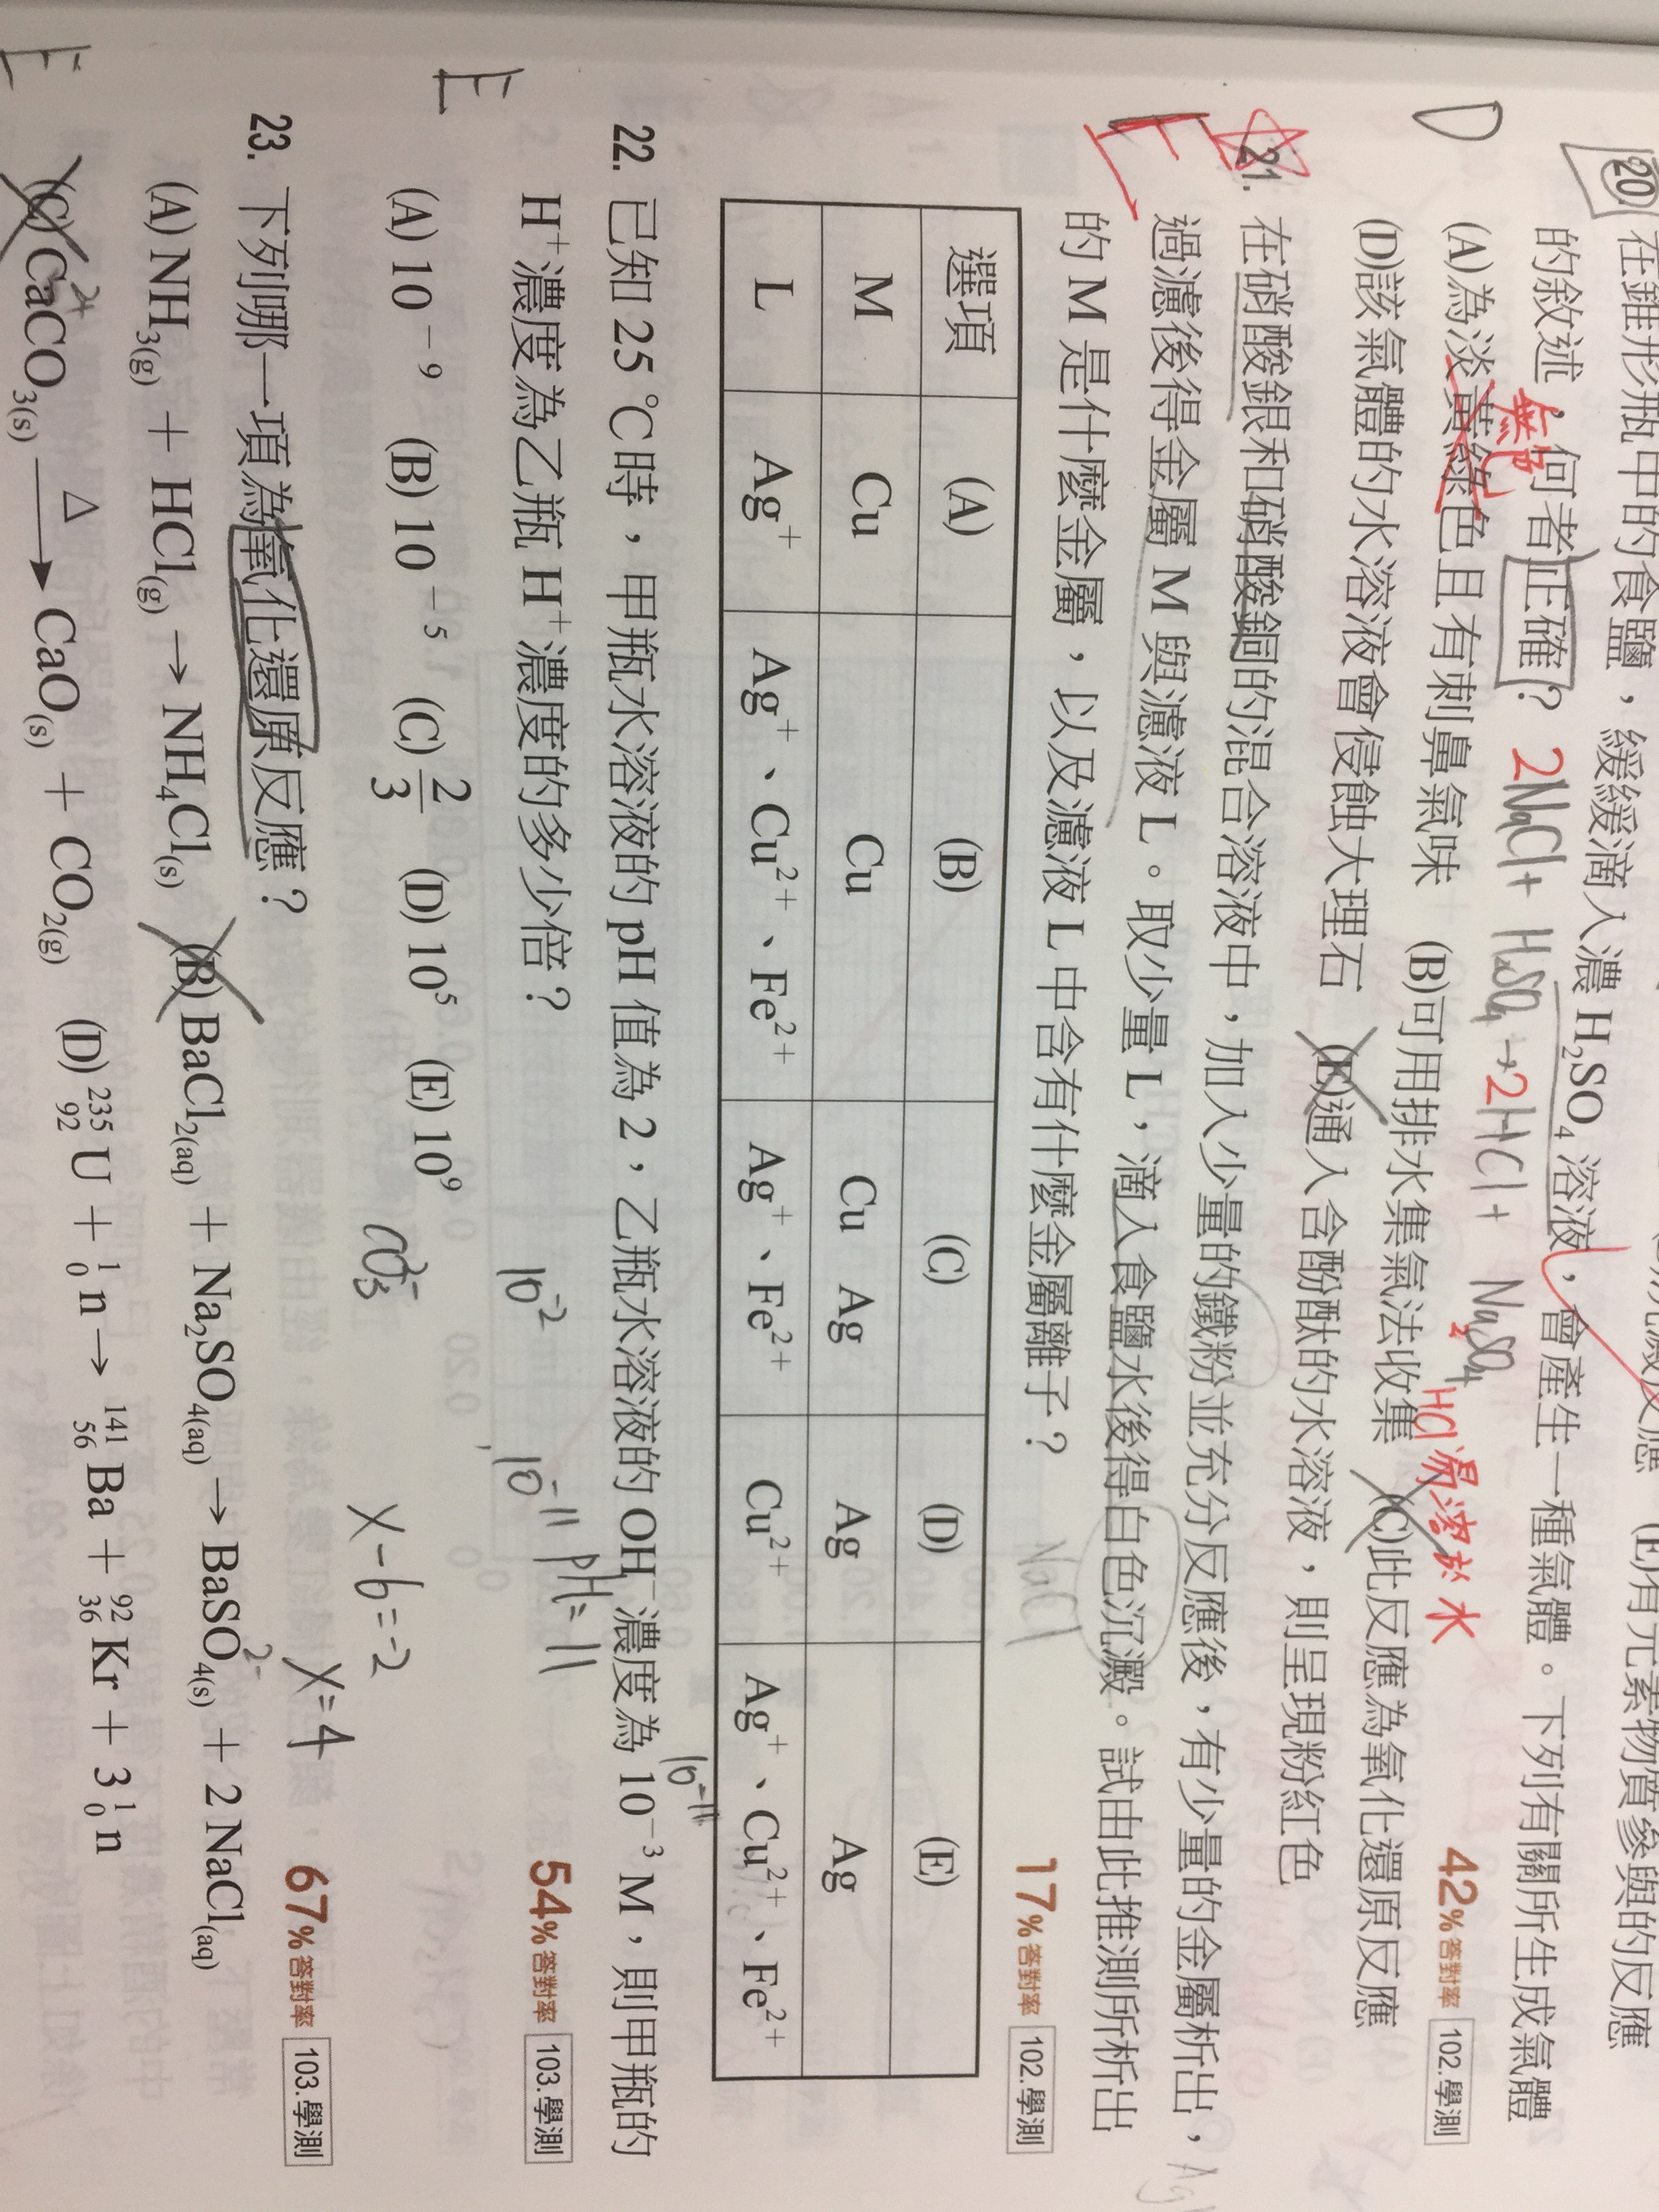 20. 在錐形瓶中的食鹽，緩緩滴入濃 H₂SO₄ 溶液，會產生一種氣體。下列有關所生成氣體
的敘述，何者正確？ 2NaCl + H₂SO₄ → 2HCl + Na₂SO₄ 42%答對率 102.學測
無
HCl易溶於水
D
(A)為淡黃綠色且有刺鼻氣味 (B)可用排水集氣法收集 (C)此反應為氧化還原反應
(D)該氣體的水溶液會侵蝕大理石 (E)通入含酚酞的水溶液，則呈現粉紅色
21. 在硝酸銀和硝酸銅的混合溶液中，加入少量的鐵粉並充分反應後，有少量的金屬析出，
E
過濾後得金屬 M 與濾液 L。取少量 L，滴入食鹽水後得白色沉澱。試由此推測所析出
的 M 是什麼金屬，以及濾液 L 中含有什麼金屬離子？ NaCl 17%答對率 102.學測
選項 (A) (B) (C) (D) (E)
M Cu Cu Cu Ag Ag Ag
L Ag⁺ Ag⁺、Cu²⁺、Fe²⁺ Ag⁺、Fe²⁺ Cu²⁺ Ag⁺、Cu²⁺、Fe²⁺
10⁻¹¹
22. 已知 25 ℃時，甲瓶水溶液的 pH 值為 2，乙瓶水溶液的 OH⁻濃度為 10⁻³ M，則甲瓶的
H⁺濃度為乙瓶 H⁺濃度的多少倍？ 10⁻² 10⁻¹¹ PH=11 54%答對率 103.學測
E
(A) 10⁻⁹ (B) 10⁻⁵ (C) 2/3 (D) 10⁵ (E) 10⁹
CO₃²⁻ X-6=-2
X=4
23. 下列哪一項為氧化還原反應？ 67%答對率 103.學測
(A) NH₃(g) + HCl(g) → NH₄Cl(s) (B) BaCl₂(aq) + Na₂SO₄(aq) → BaSO₄(s) + 2 NaCl(aq)
2-
E
2+
(C) CaCO₃(s) △→ CaO(s) + CO₂(g) (D) ²³⁵₉₂U + ¹₀n → ¹⁴¹₅₆Ba + ⁹²₃₆Kr + 3 ¹₀n